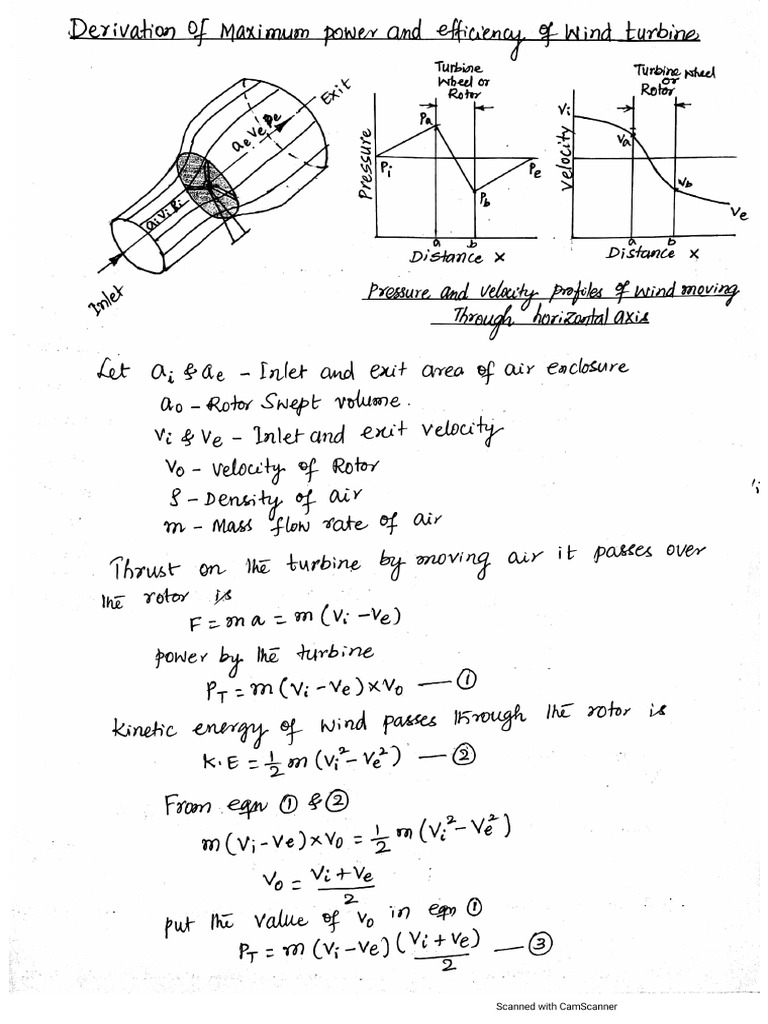 Derivation Of Maximum power and efficiency of wind turbine
Exit
ae Ve Pe
ai Vi Pi
Inlet
Turbine
Wheel or
Rotor
Pressure
Pi
Pa
Pb
Pe
a
b
Distance x
Turbine wheel
or
Rotor
Velocity
Vi
Va
Vb
Ve
a
b
Distance x
Pressure and velocity profiles of wind moving
Through horizontal axis
Let ai & ae - Inlet and exit area of air enclosure
ao - Rotor Swept volume.
Vi & Ve - Inlet and exit velocity
Vo - Velocity of Rotor
ρ - Density of air
m - Mass flow rate of air
Thrust on the turbine by moving air it passes over
the rotor is
F = ma = m(Vi - Ve)
power by the turbine
PT = m(Vi - Ve) x Vo — ①
Kinetic energy of wind passes through the rotor is
K.E = 1/2 m (Vi² - Ve²) — ②
From eqn ① & ②
m(Vi - Ve) x Vo = 1/2 m (Vi² - Ve²)
Vo = Vi + Ve / 2
put the value of Vo in eqn ①
PT = m (Vi - Ve) (Vi + Ve) / 2 — ③
Scanned with CamScanner